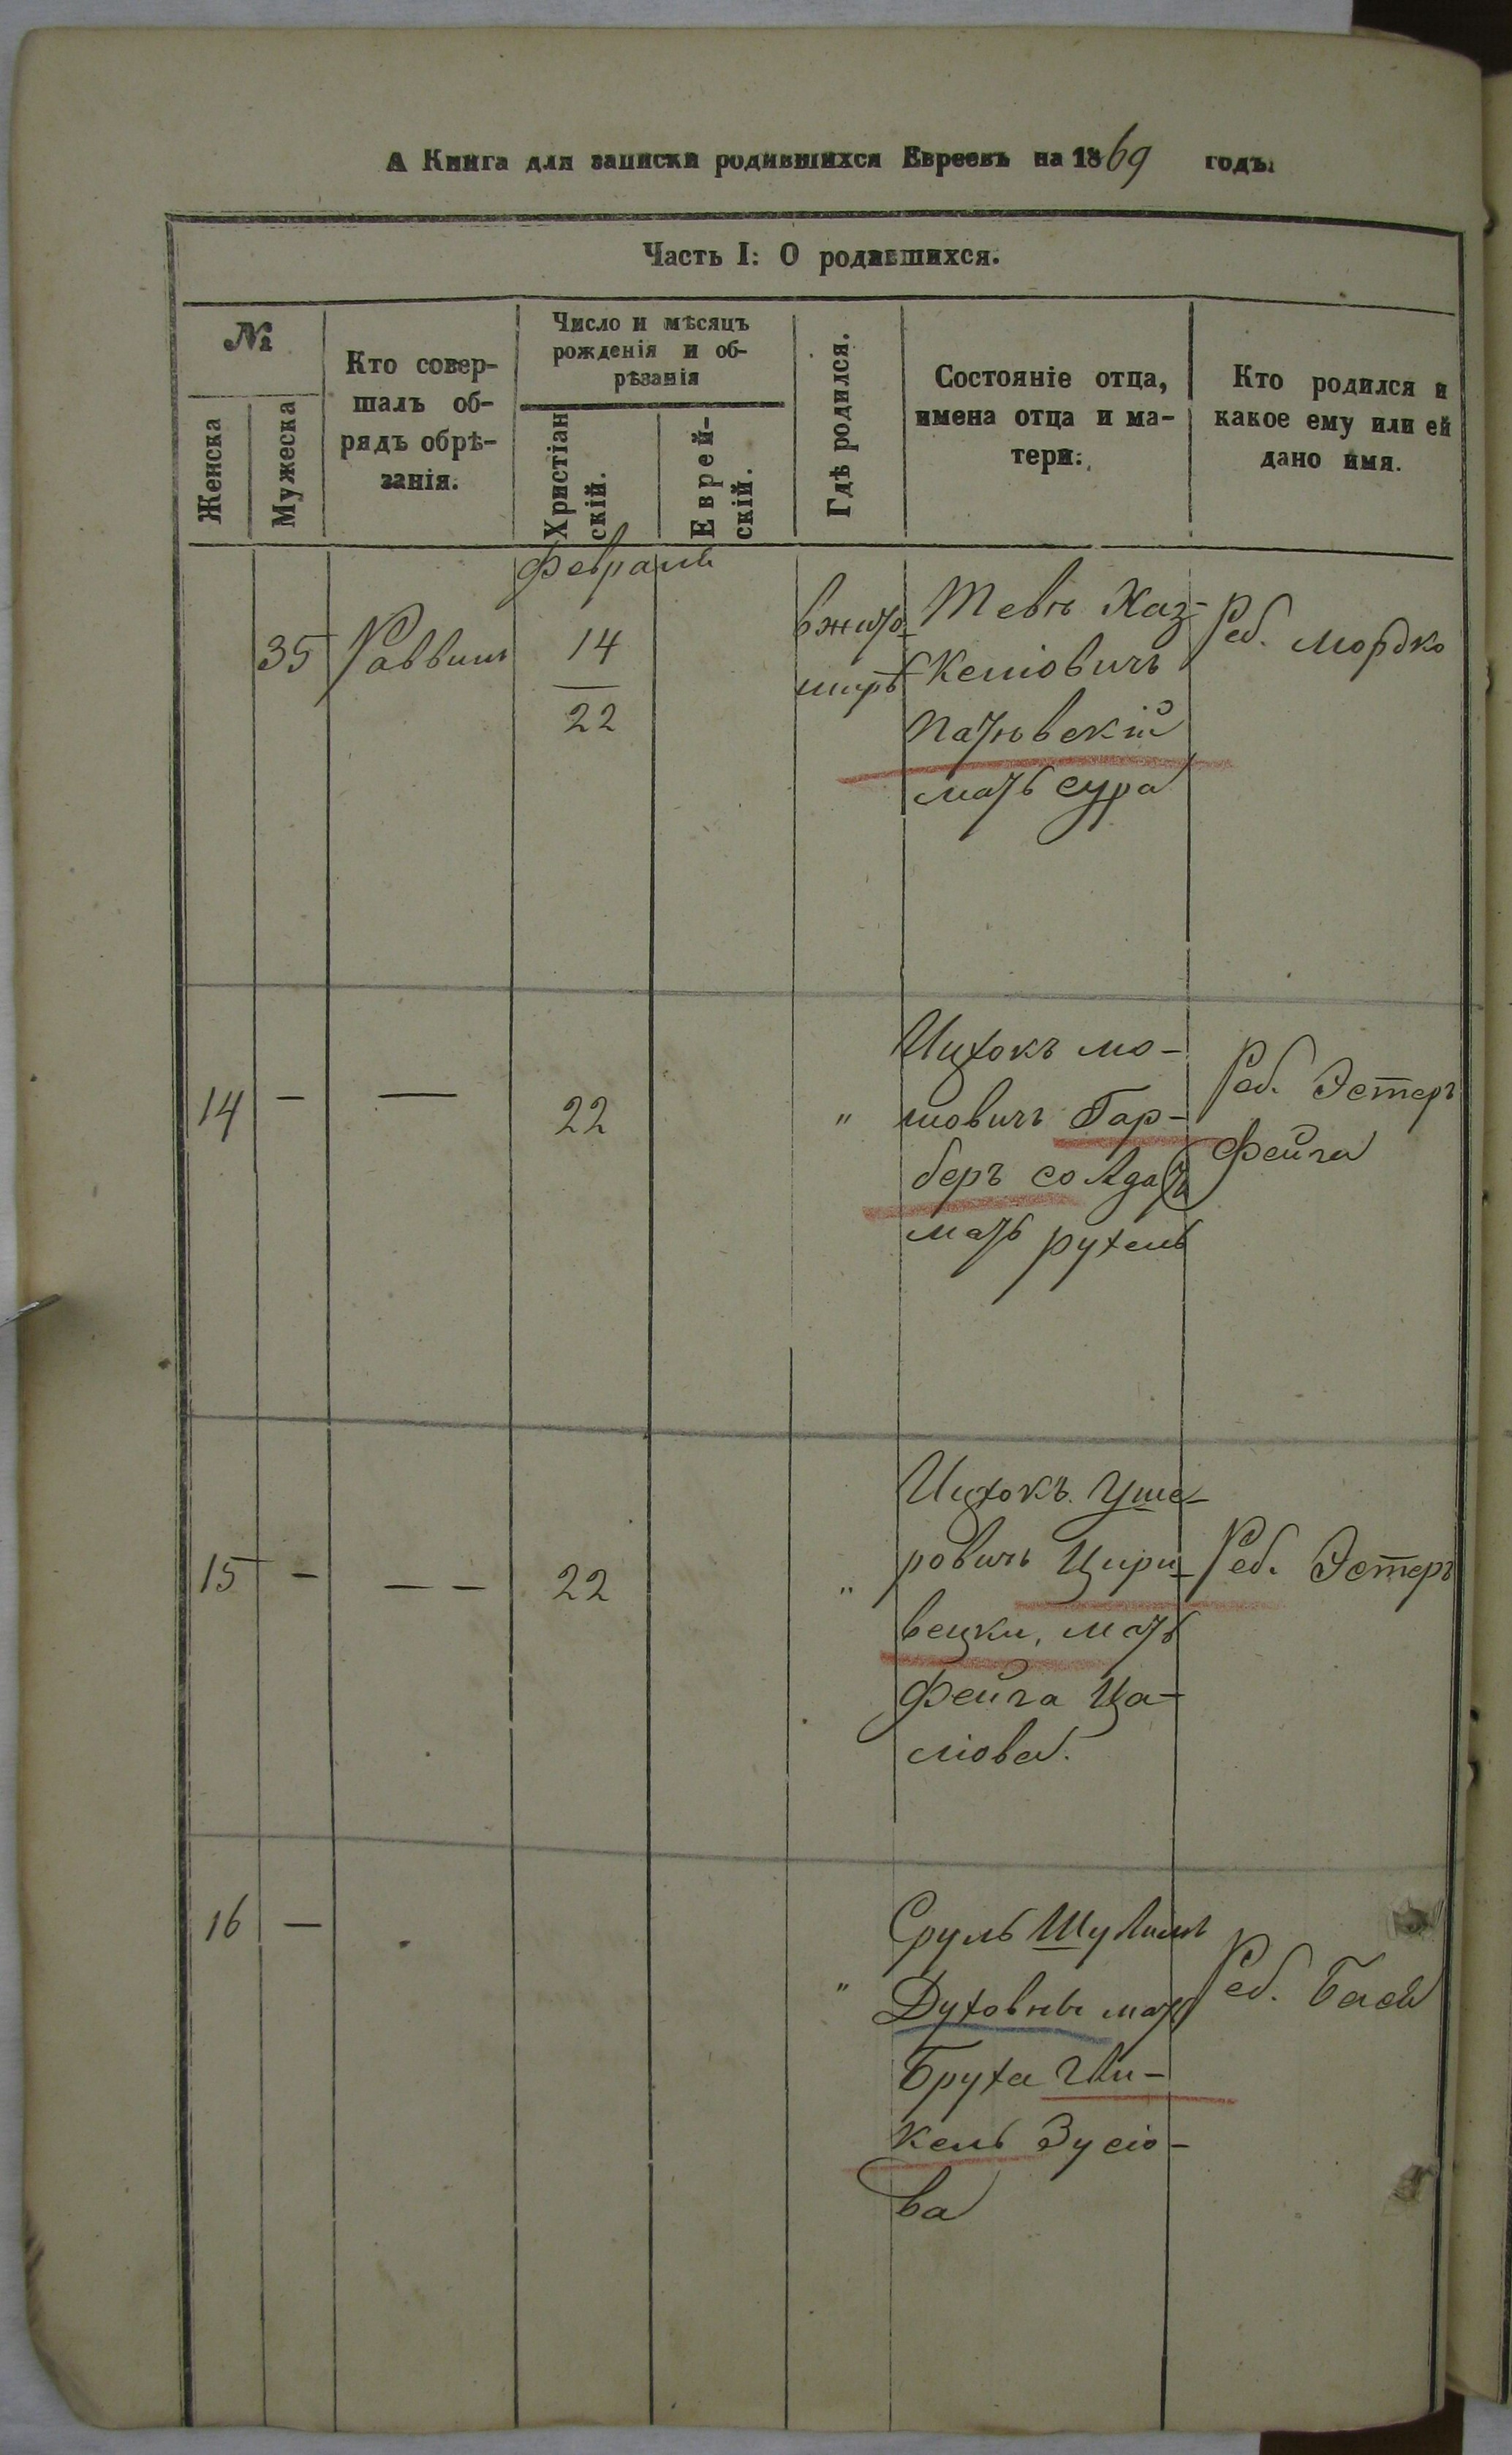 А Книга для записки родившихся Евреевъ на 1869 годъ.
Часть I: О родившихся.
№
Женска
Мужеска
Кто совер-
шалъ об-
рядъ обрѣ-
занія.
Число и мѣсяцъ
рожденія и об-
рѣзанія
Христіан
скій.
Еврей-
скій.
Гдѣ родился.
Состояніе отца,
имена отца и ма-
тери.
Кто родился и
какое ему или ей
дано имя.
Февраль
35
Раввинъ
14
22
вжито
миръ
Тевь Хаз-
келіовичъ
мать сура
Реб. Мордко
14
—
—
22
"
Ицхокъ мо-
шовичъ Гар-
беръ солдатъ
мать рухель
Реб. Эстеръ
Фейга
15
—
— —
22
"
Ицхокъ Уше-
ровичъ Цири-
вецки, мать
Фейга Ца-
ліова.
Реб. Эстеръ
16
—
"
Сруль Шулимъ
Духовны мать
Бруха
кель Зусіо-
ва
Реб. Бася